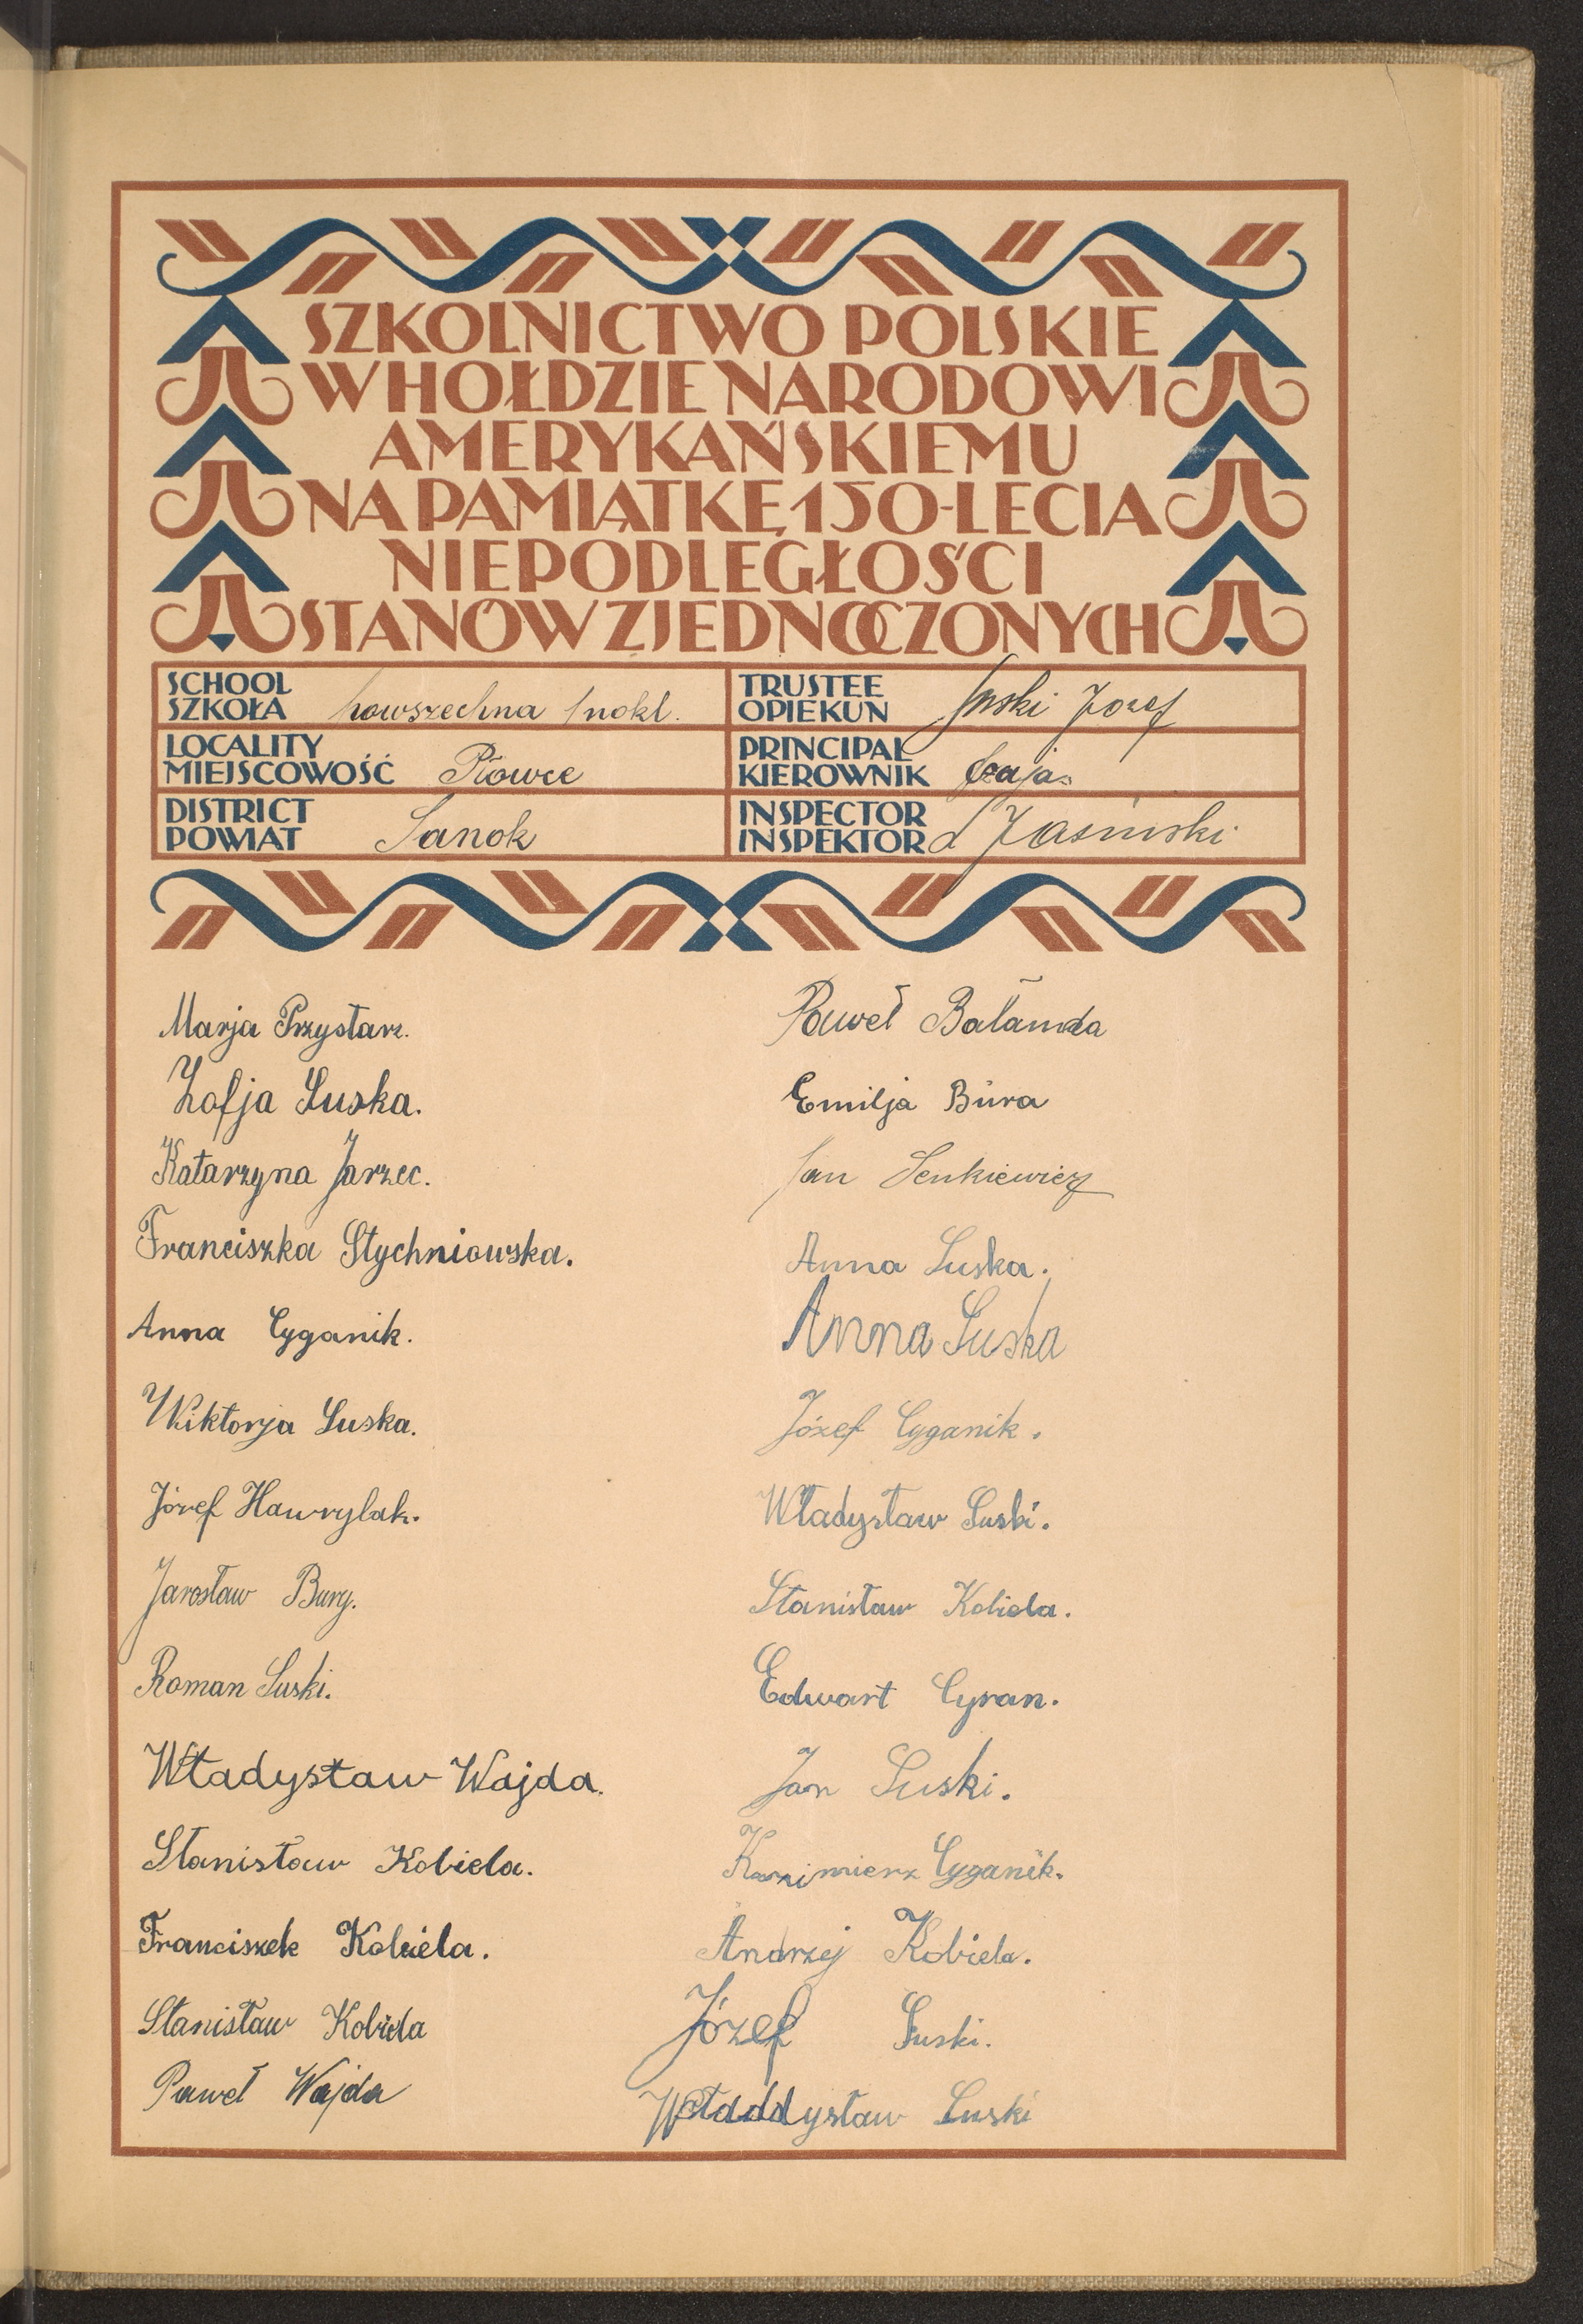 SZKOLNICTWO POLSKIE
W HOŁDZIE NARODOWI
AMERYKAŃSKIEMU
NA PAMIĄTKĘ 150-LECIA
NIEPODLEGŁOŚCI
STANÓW ZJEDNOCZONYCH
SCHOOL
SZKOŁA powszechna 1nokl.
TRUSTEE
OPIEKUN Suski Józef
LOCALITY
MIEJSCOWOŚĆ Płowce
PRINCIPAL
KIEROWNIK
DISTRICT
POWIAT Sanok
INSPECTOR
INSPEKTOR Jasiński
Marja Przystarz.
Zofja Suska.
Katarzyna Jarzec.
Franciszka Stychniowska.
Anna Cyganik.
Wiktorja Suska.
Józef Hawrylak.
Jarosław Bury.
Roman Suski.
Władysław Wajda.
Stanisław Kobiela.
Franciszek Kobiela.
Stanisław Kobiela
Paweł Wajda
Paweł Bałanda
Emilja Bura
Jan Senkiewicz
Anna Suska.
Anna Suska
Józef Cyganik.
Władysław Suski.
Stanisław Kobiela.
Edwart Cyran.
Jan Suski.
Kazimierz Cyganik.
Andrzej Kobiela.
Józef Suski.
Władysław Suski